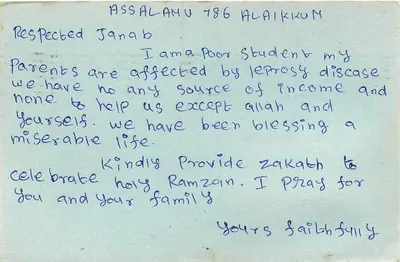 ASSALAMU 786 ALAIKKUM
Respected Janab
I am a poor student my
parents are affected by leprosy disease.
we have no any source of income and
none to help us except allah and
yourself. we have been blessing a
miserable life.
Kindly Provide zakath to
celebrate holy Ramzan. I pray for
you and your family
yours faithfully